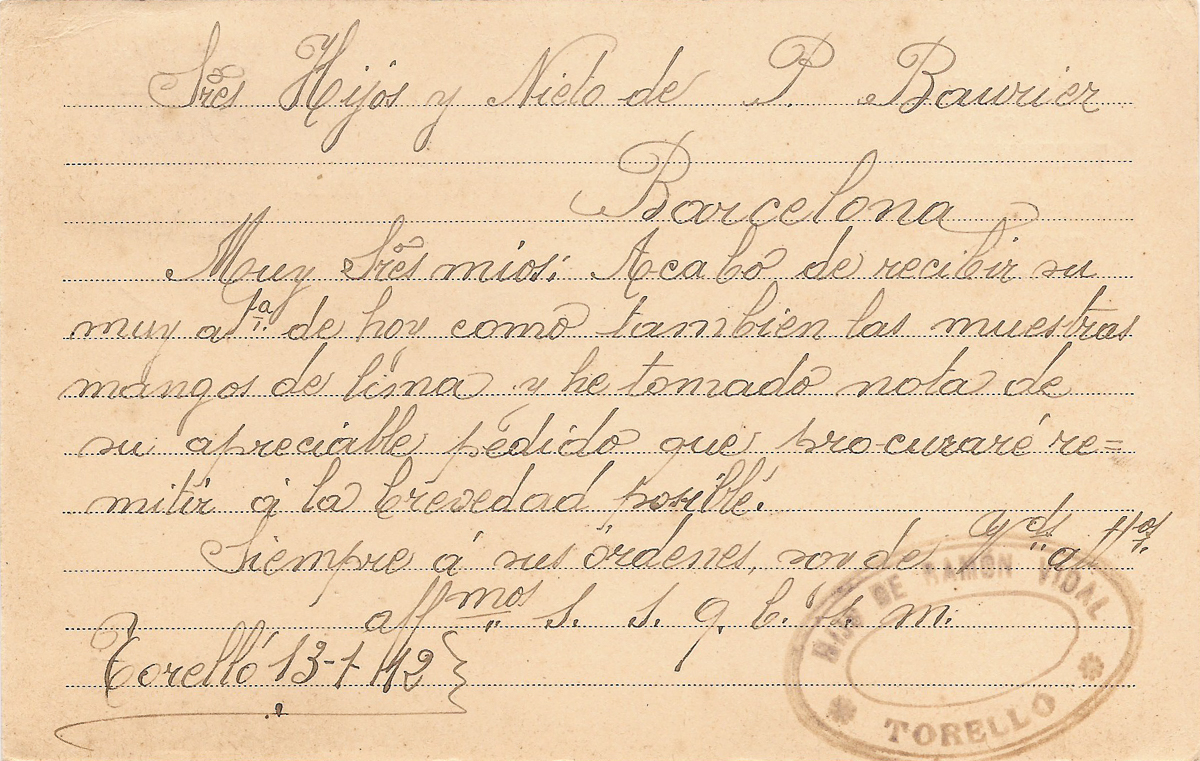 Sres Hijos y Nieto de P. Baurier
Barcelona
Muy Sres mios: Acabo de recibir su
muy atta. de hoy como tambien las muestras
mangos de lima y he tomado nota de
su apreciable pedido que procuraré re=
mitir á la brevedad posible.
Siempre á sus órdenes, son de
affmos s. s. q. b. s. m.
Torelló 13-1-12
HIJO DE RAMON VIDAL
TORELLÓ